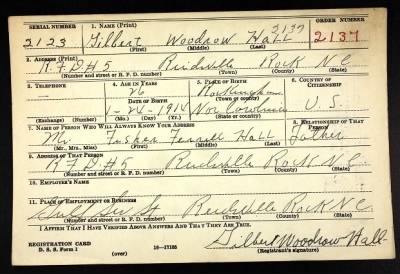 SERIAL NUMBER 1. NAME (Print) ORDER NUMBER
2123 Gilbert Woodrow Hall 2137 2137
(First) (Middle) (Last)
2. ADDRESS (Print)
R.F.D #5 Reidsville Rock N C
(Number and street or R. F. D. number) (Town) (County) (State)
3. TELEPHONE 4. AGE IN YEARS 5. PLACE OF BIRTH 6. COUNTRY OF CITIZENSHIP
26 Rockingham
DATE OF BIRTH (Town or county)
1-24-1914 Nor Carolina U.S.
(Exchange) (Number) (Mo.) (Day) (Yr.) (State or country)
7. NAME OF PERSON WHO WILL ALWAYS KNOW YOUR ADDRESS 8. RELATIONSHIP OF THAT PERSON
Mr. Ferrell Hall Father
(Mr., Mrs., Miss) (First) (Middle) (Last)
9. ADDRESS OF THAT PERSON
R.F.D #5 Reidsville Rock N.C.
(Number and street or R. F. D. number) (Town) (County) (State)
10. EMPLOYER'S NAME
11. PLACE OF EMPLOYMENT OR BUSINESS
St Reidsville Rock N C
(Number and street or R. F. D. number) (Town) (County) (State)
I AFFIRM THAT I HAVE VERIFIED ABOVE ANSWERS AND THAT THEY ARE TRUE.
REGISTRATION CARD 16—17105 Gilbert Woodrow Hall
D. S. S. Form 1 (over) (Registrant's signature)